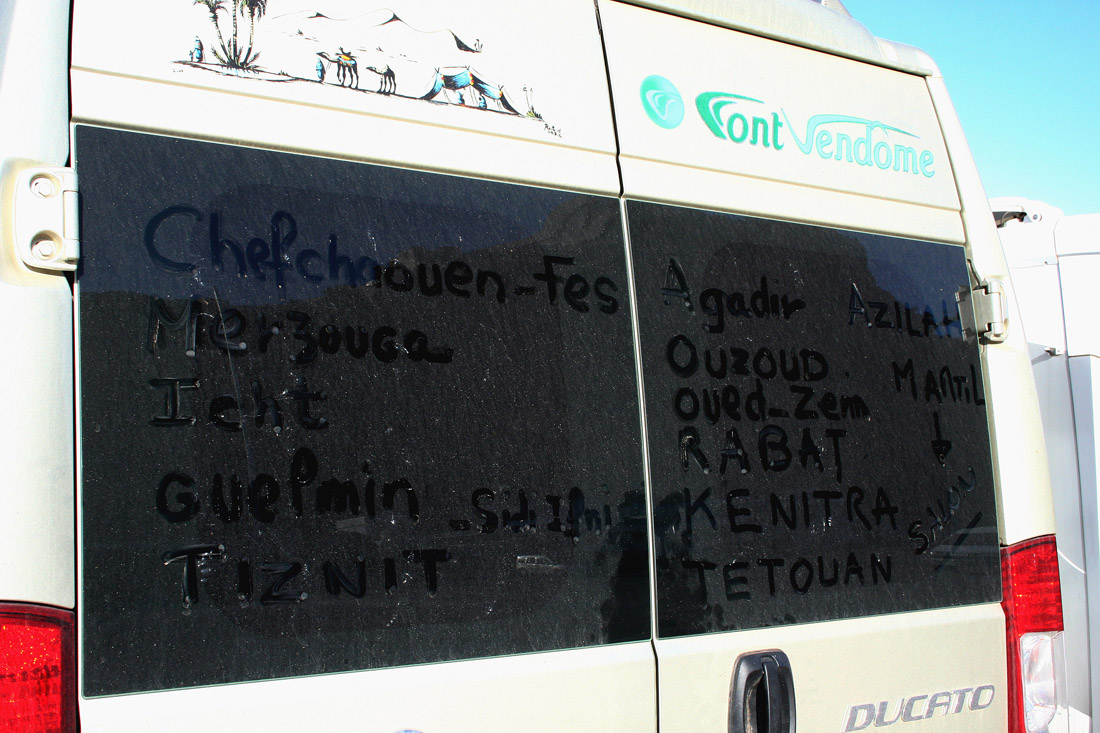 Font Vendôme
Chefchaouen-Fes
Merzouga
Icht
Guelmin - Sidi Ifni
TIZNIT
Agadir
OUZOUD
oued-Zem
RABAT
KENITRA
TETOUAN
AZILAH
MARTIL
SAVON
DUCATO